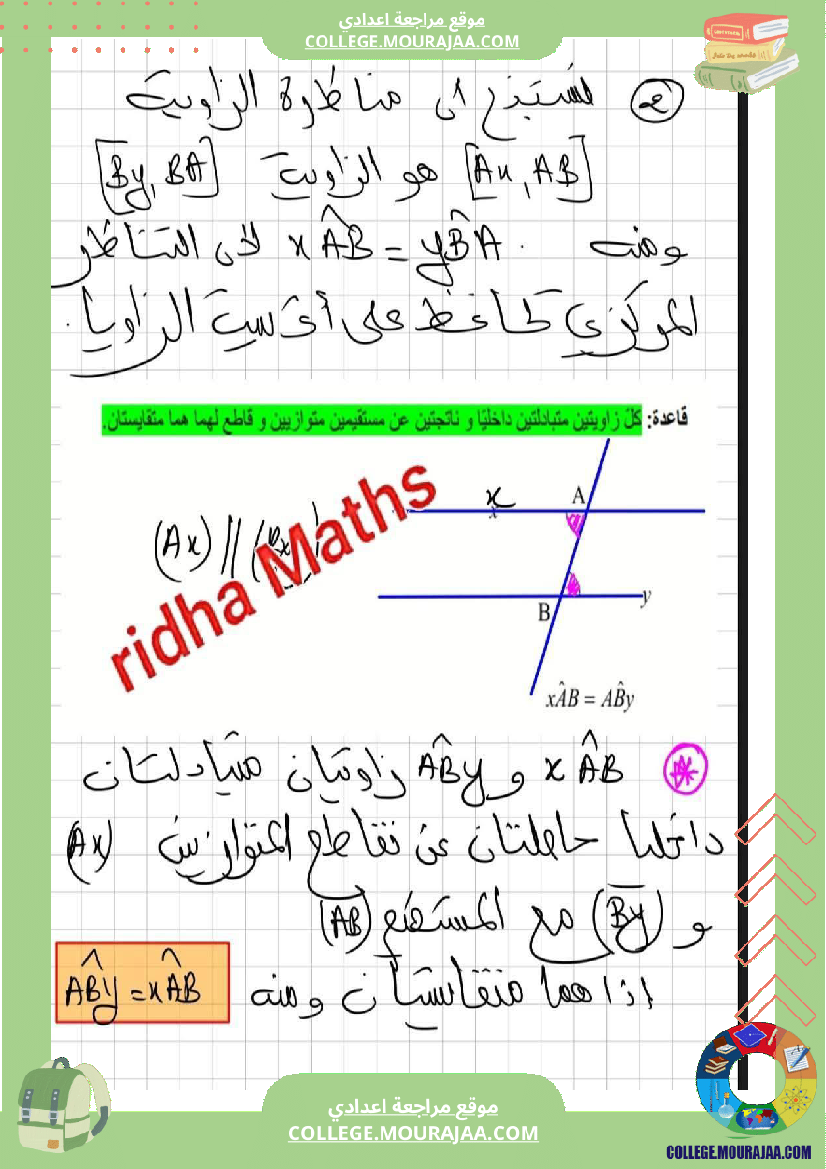 موقع مراجعة اعدادي
COLLEGE.MOURAJAA.COM
نستنتج ان مناظرة الزاوية
[Ax, AB] هو الزاوية [By, BA]
ومنه xÂB = yB̂A لان التناظر
المركزي يحافظ على أقيسة الزوايا.
قاعدة: كلّ زاويتين متبادلتين داخليّا و ناتجتين عن مستقيمين متوازيين و قاطع لهما هما متقايستان.
x
A
(Ax) //
ridha Maths
B
y
xÂB = AB̂y
xÂB و AB̂y زاويتان متبادلتان
داخليا حاصلتان عن تقاطع المتوازيين (Ax)
و (By) مع المستقيم (AB)
اذا هما متقايستان ومنه AB̂y = xÂB
موقع مراجعة اعدادي
COLLEGE.MOURAJAA.COM
COLLEGE.MOURAJAA.COM